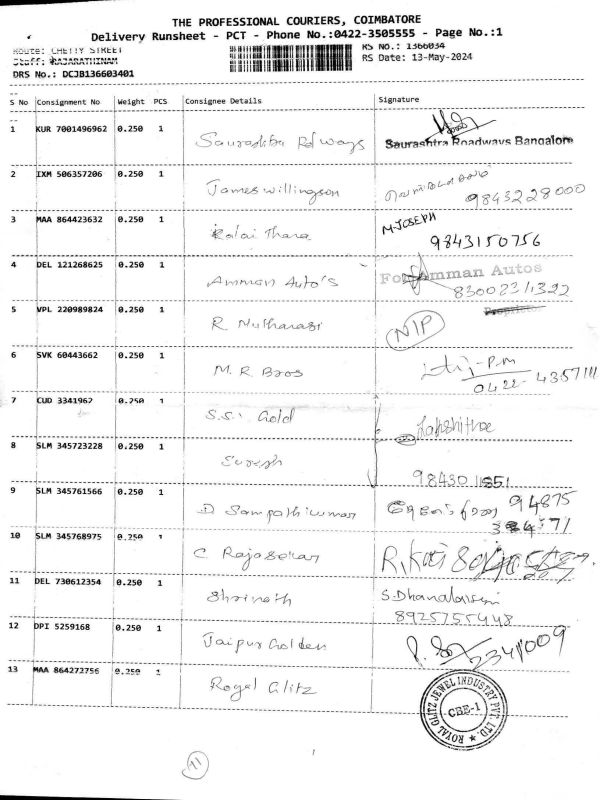 THE PROFESSIONAL COURIERS, COIMBATORE
Delivery Runsheet - PCT - Phone No.:0422-3505555 - Page No.:1
Route: CHETTY STREET RS No.: 1366034
Staff: RAJARATHINAM RS Date: 13-May-2024
DRS No.: DCJB136603401
S No Consignment No Weight PCS Consignee Details Signature
1 KUR 7001496962 0.250 1 Saurashtra Rdways Saurashtra Roadways Bangalore
2 IXM 506357206 0.250 1 James willingson 9843228000
3 MAA 864423632 0.250 1 Kalai Thara M.JOSEPH
9843150756
4 DEL 121268625 0.250 1 Amman Auto's For Amman Autos
8300231322
5 VPL 220989824 0.250 1 R Mutharasi NIP
6 SVK 60443662 0.250 1 M.R Bros P.M
0422-4357111
7 CUD 3341962 0.250 1 S.S. Gold Lakshithae
8 SLM 345723228 0.250 1 Suresh
9843011851
9 SLM 345761566 0.250 1 D Sampathkumar 94875
10 SLM 345768975 0.250 1 C Rajasekar
11 DEL 730612354 0.250 1 Shrinath S.Dhanalaxmi
8925755448
12 DPI 5259168 0.250 1 Jaipur Golden 2341009
13 MAA 864272756 0.250 1 Royal Glitz
ROYAL GLITZ JEWEL INDUSTRY PVT. LTD.
CBE-1
11